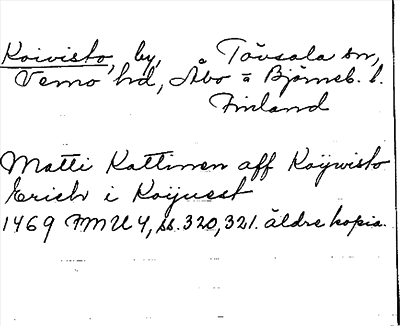 Koivisto, by, Tövsala sn,
Vemo hd, Åbo - Björneb. l.
Finland
Matti Kattinen aff Koijwisto
Erich i Koijuest
1469 FMU 4, ss. 320, 321. äldre kopia.